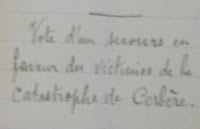 Vote d'un secours en
faveur des victimes de la
catastrophe de Cerbère.